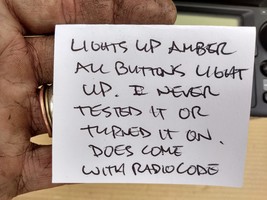 LIGHTS UP AMBER
ALL BUTTONS LIGHT
UP. I NEVER
TESTED IT OR
TURNED IT ON.
DOES COME
WITH RADIO CODE